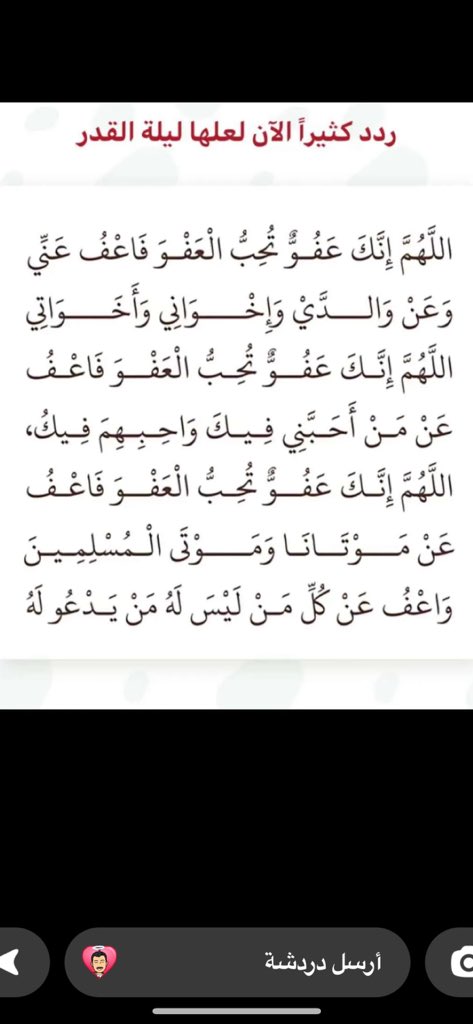 ردد كثيراً الآن لعلها ليلة القدر
اللَّهُمَّ إِنَّكَ عَفُــوٌّ تُحِبُّ الْعَفْـوَ فَاعْفُ عَنِّي
وَعَنْ وَالـــــدَّيْ وَإِخْـــــوَانِي وَأَخَـــــوَاتِي
اللَّهُمَّ إِنَّــكَ عَفُـــوٌّ تُحِــبُّ الْعَفْــوَ فَاعْــفُ
عَنْ مَــنْ أَحَبَّنِي فِيــكَ وَاحِبِــهِمَ فِيــكُ،
اللَّهُمَّ إِنَّــكَ عَفُـــوٌّ تُحِــبُّ الْعَفْــوَ فَاعْــفُ
عَنْ مَـــوْتَـــانَــا وَمَـــــوْتَى الْــمُسْلِمِيــنَ
وَاعْفُ عَنْ كُلِّ مَــنْ لَيْسَ لَهُ مَنْ يَــدْعُو لَهُ
أرسل دردشة